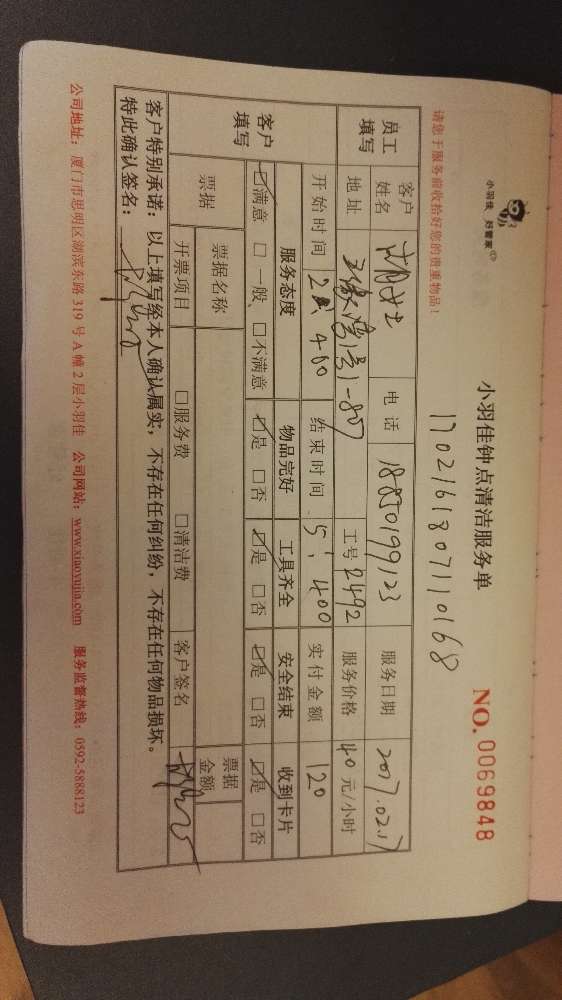 小羽佳 好管家
小羽佳钟点清洁服务单
NO. 0069848
1702161807110168
请您于服务前收拾好您的贵重物品!
员工填写 客户姓名 女士 电话 18850199123 服务日期 2017.02.17
地址 1-807 工号 2492 服务价格 40 元/小时
开始时间 2 400 结束时间 5:400 实付金额 120
客户填写 服务态度 物品完好 工具齐全 安全结束 收到卡片
☑满意 □一般 □不满意 ☑是 □否 ☑是 □否 ☑是 □否 ☑是 □否
票据 票据名称 票据金额
开票项目 □服务费 □清洁费 客户签名
客户特别承诺:以上填写经本人确认属实,不存在任何纠纷,不存在任何物品损坏。
特此确认签名:
公司地址:厦门市思明区湖滨东路 319 号 A 幢 2 层小羽佳 公司网站:www.xiaoyujia.com 服务监督热线:0592-5888123